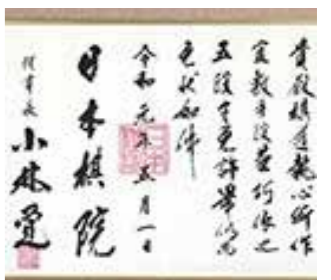 貴殿棋道執心所作
宜敷手段益巧依之
五段令免許畢仍而
免状如件
令和元年五月一日
日本棋院
理事長 小林覚